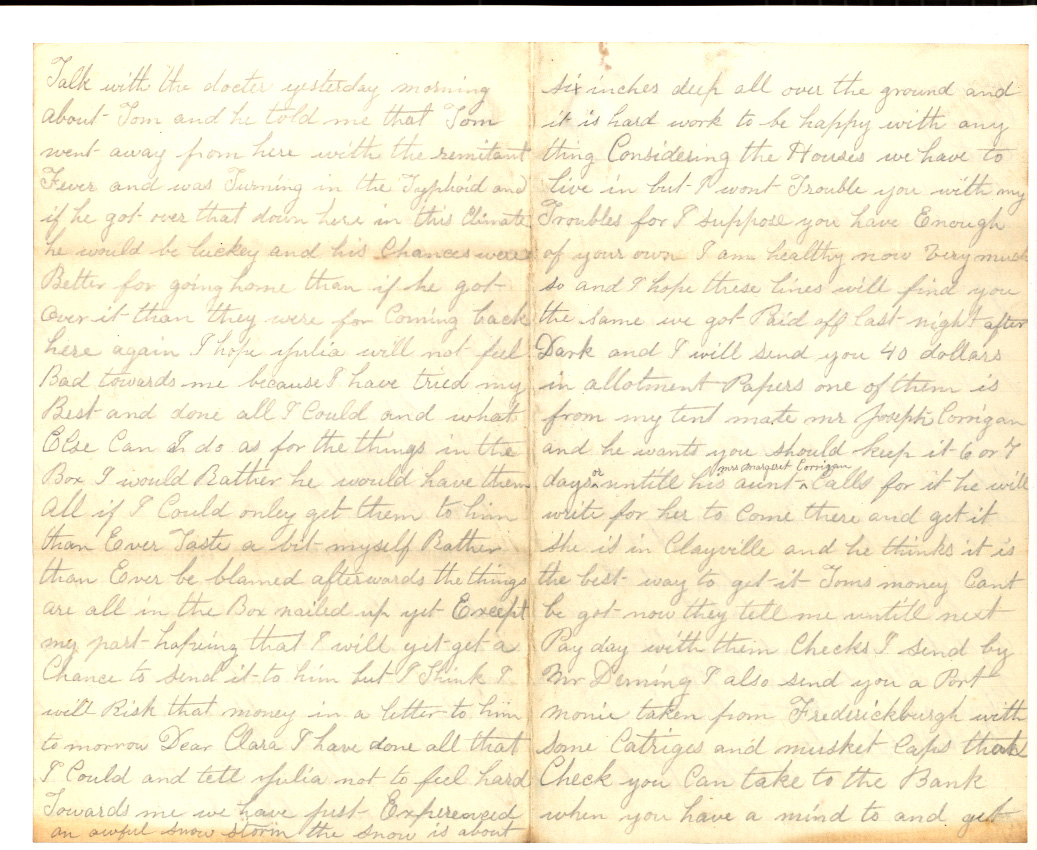 Talk with the docter yesterday morning
about Tom and he told me that Tom
went away from here with the remitant
Fever and was Turning in the Typhoid and
if he got over that down here in this Climate
he would be luckey and his Chances were
Better for going home than if he got
over it than they were for Coming back
here again I hope Julia will not feel
Bad towards me because I have tried my
Best and done all I Could and what
Else Can I do as for the things in the
Box I would Rather he would have them
all if I Could onley get them to him
than Ever Taste a bit myself Rather
than Ever be blamed afterwards the things
are all in the Box nailed up yet Except
my part hopeing that I will yet get a
Chance to send it to him but I Think I
will Risk that money in a letter to him
to morrow Dear Clara I have done all that
I Could and tell Julia not to feel hard
Towards me we have just Experenced
an awful snow storm the snow is about
six inches deep all over the ground and
it is hard work to be happy with any
thing Considering the Houses we have to
live in but I wont Trouble you with my
Troubles for I suppose you have Enough
of your own I am healthy now very much
so and I hope these lines will find you
the same we got Paid off last night after
Dark and I will send you 40 dollars
in allotment Papers one of them is
from my tent mate mr Joseph Corrigan
and he wants you should keep it 6 or 7
days or untill his aunt mrs Margaret Corrigan Calls for it he will
write for her to Come there and get it
she is in Clayville and he thinks it is
the best way to get it Toms money Cant
be got now they tell me untill next
Pay day with them Checks I send by
Mr Deming I also send you a Port
monie taken from Frederickburgh with
some Catriges and musket Caps that
Check you Can take to the Bank
when you have a mind to and get